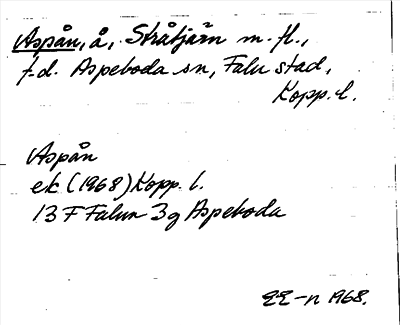 Aspån, å, Stråtjärn m. fl.,
f.d. Aspeboda sn, Falu stad,
Kopp. l.
Aspån
ek (1968) Kopp. l.
13 F Falun 3g Aspeboda
EE-n 1968.